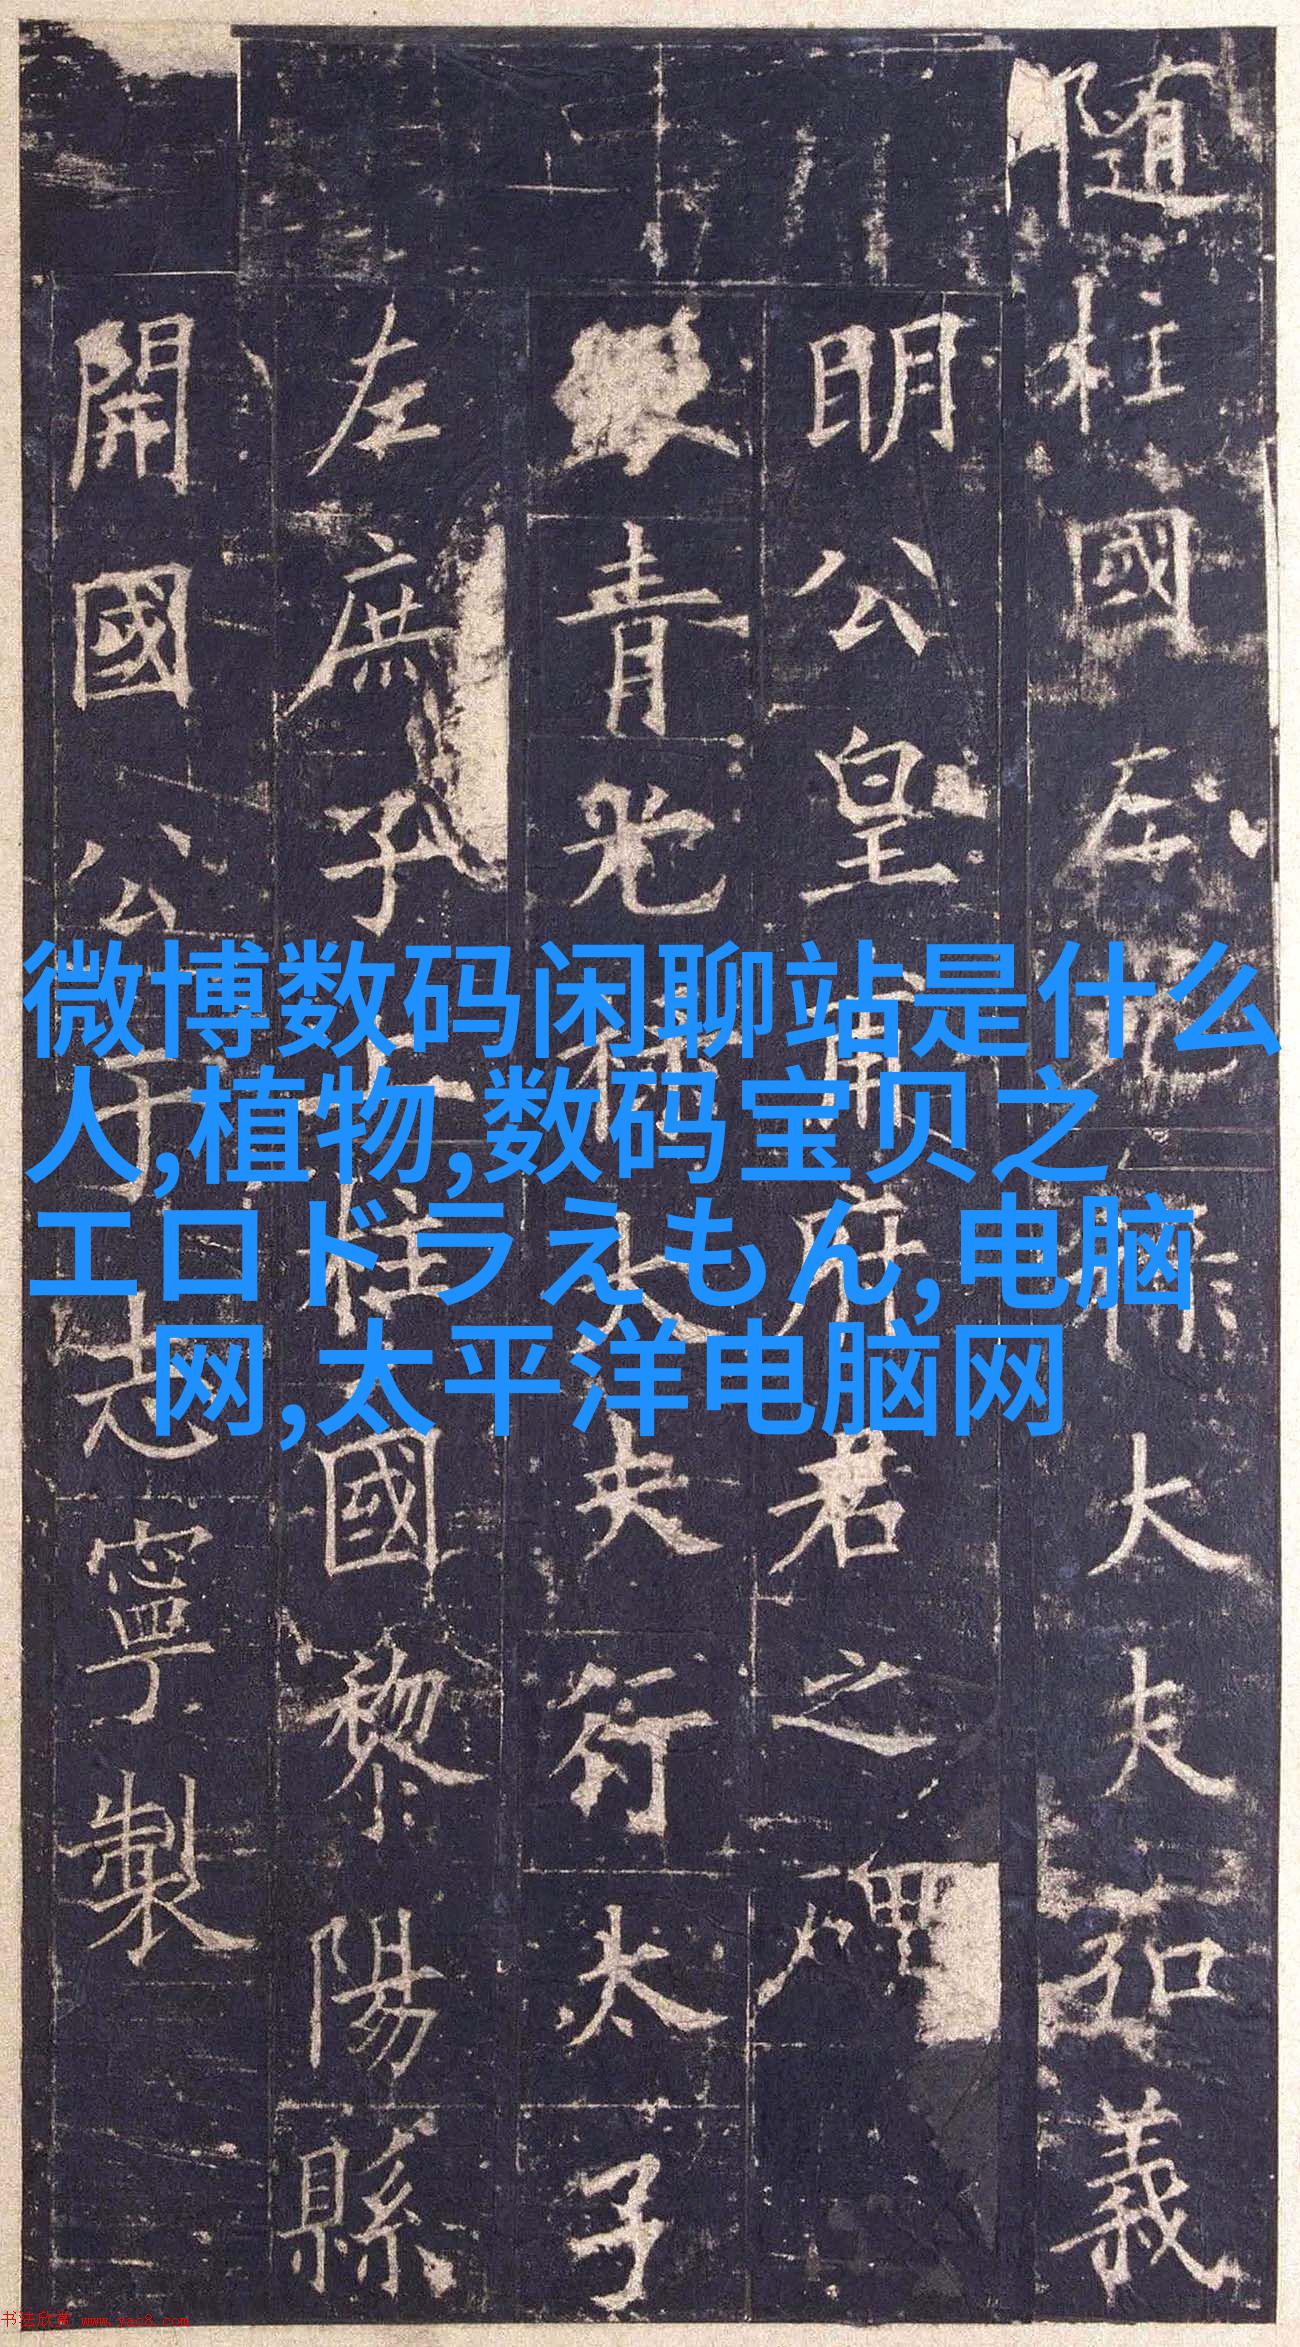 隨柱國左光祿大夫弘義
明公皇甫府君之碑
銀青光祿大夫行太子
左庶子上柱國黎陽縣
開國公于志寧製
微博数码闲聊站是什么
人,植物,数码宝贝之
エロドラえもん,电脑
网,太平洋电脑网
书法欣赏 www.yac8.com